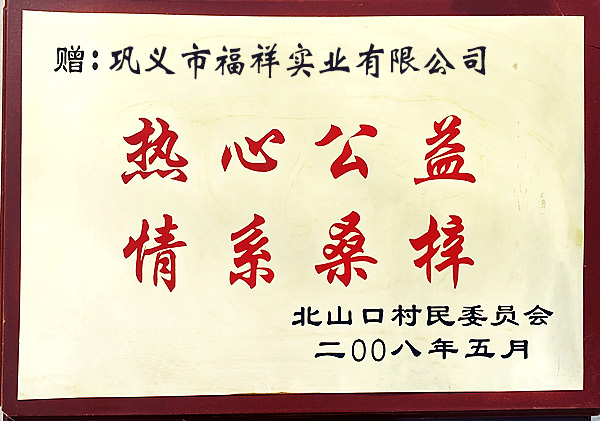 赠:巩义市福祥实业有限公司
热心公益
情系桑梓
北山口村民委员会
二00八年五月